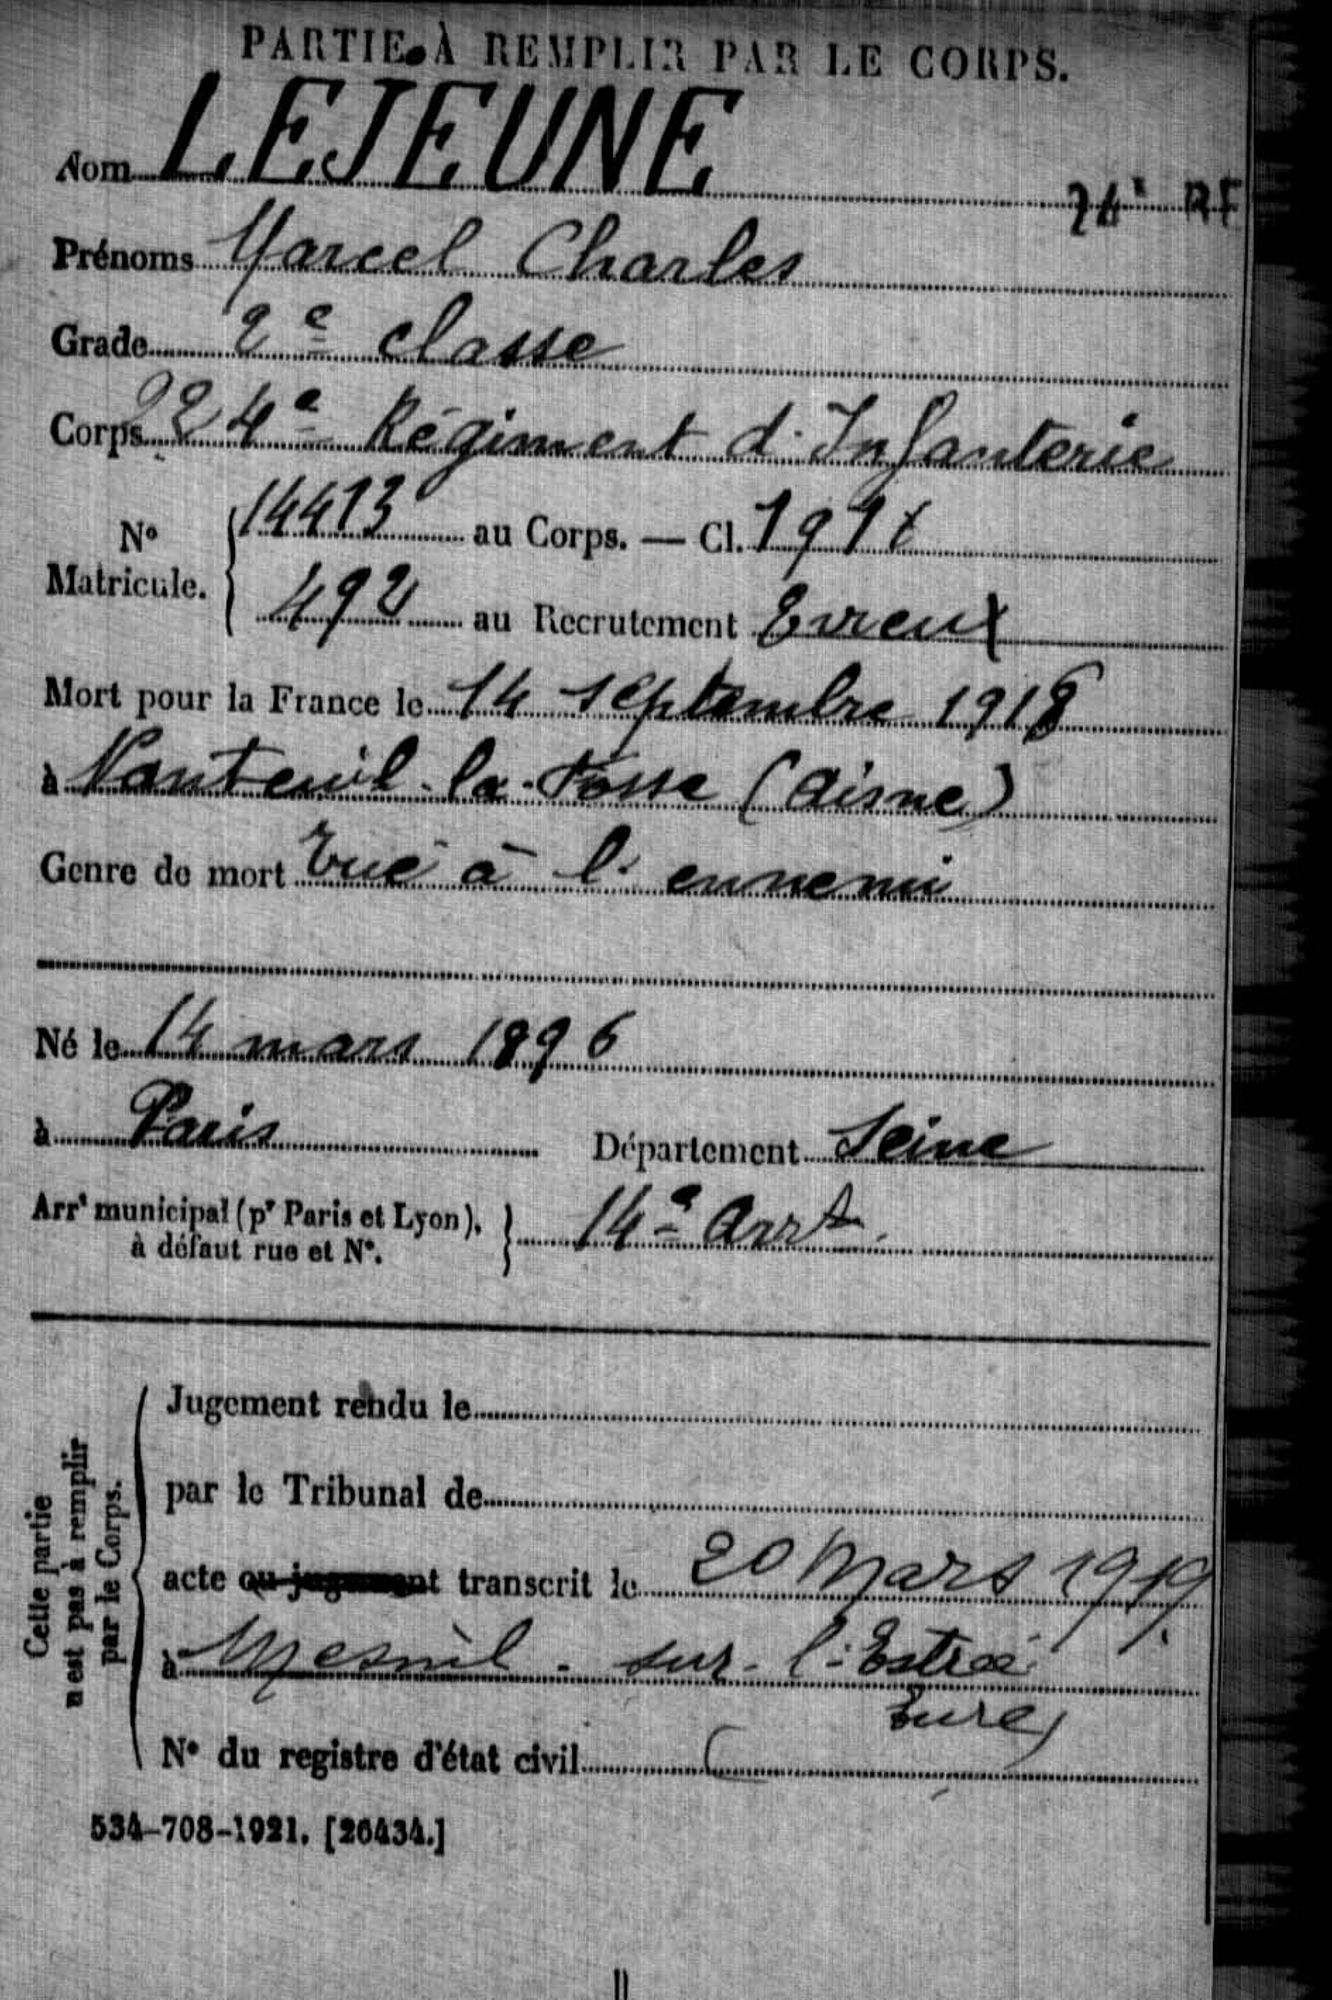 PARTIE À REMPLIR PAR LE CORPS.
Nom LEJEUNE
Prénoms Marcel Charles
Grade 2e classe
Corps 224e Régiment d'Infanterie
No Matricule. 14413 au Corps. — Cl. 1916
492 au Recrutement Evreux
Mort pour la France le 14 septembre 1918
à Nanteuil-la-Fosse (Aisne)
Genre de mort tué à l'ennemi
Né le 14 mars 1896
à Paris Département Seine
Arrt municipal (pr Paris et Lyon), 14e Arrt.
à défaut rue et No.
Cette partie
n'est pas à remplir
par le Corps.
Jugement rendu le
par le Tribunal de
acte ou jugement transcrit le 20 Mars 1919.
à Mesnil-sur-l'Estrée
Eure
No du registre d'état civil (
534-708-1921. [26434.]